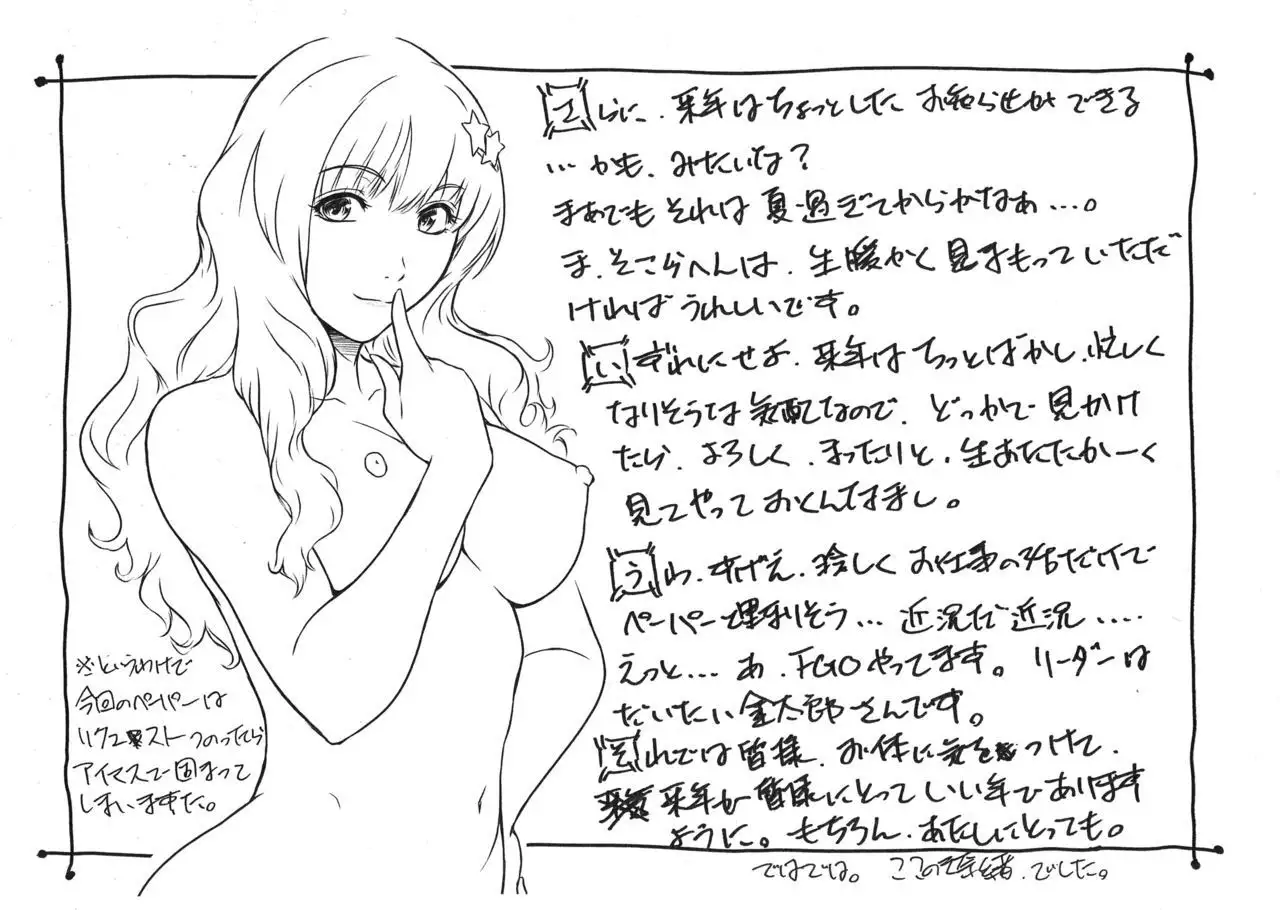 さらに、来年はちょっとしたお知らせができる
…かも、みたいな？
まあでもそれは夏過ぎてからかなぁ…。
ま、そこらへんは、生暖かく見まもっていただだ
ければうれしいです。
いずれにせよ、来年はちっとばかし、忙しく
なりそうな気配なので、どっかで見かけ
たら、よろしく、まったりと、生あたたかーく
見てやっておくんなまし。
うわ、すげえ、珍しくお仕事の話だけで
ペーパー埋まりそう…近況だ近況....
えっと…あ、FGOやってます。リーダーは
だいたい金太郎さんです。
それでは皆様、お体に気をつけて、
来年が皆様にとっていい年であります
ように。もちろん、あたしにとっても。
ではでは。ここのき奈緒、でした。
※というわけで
今回のペーパーは
リクエストつのったら
アイマスで固まって
しまいました。